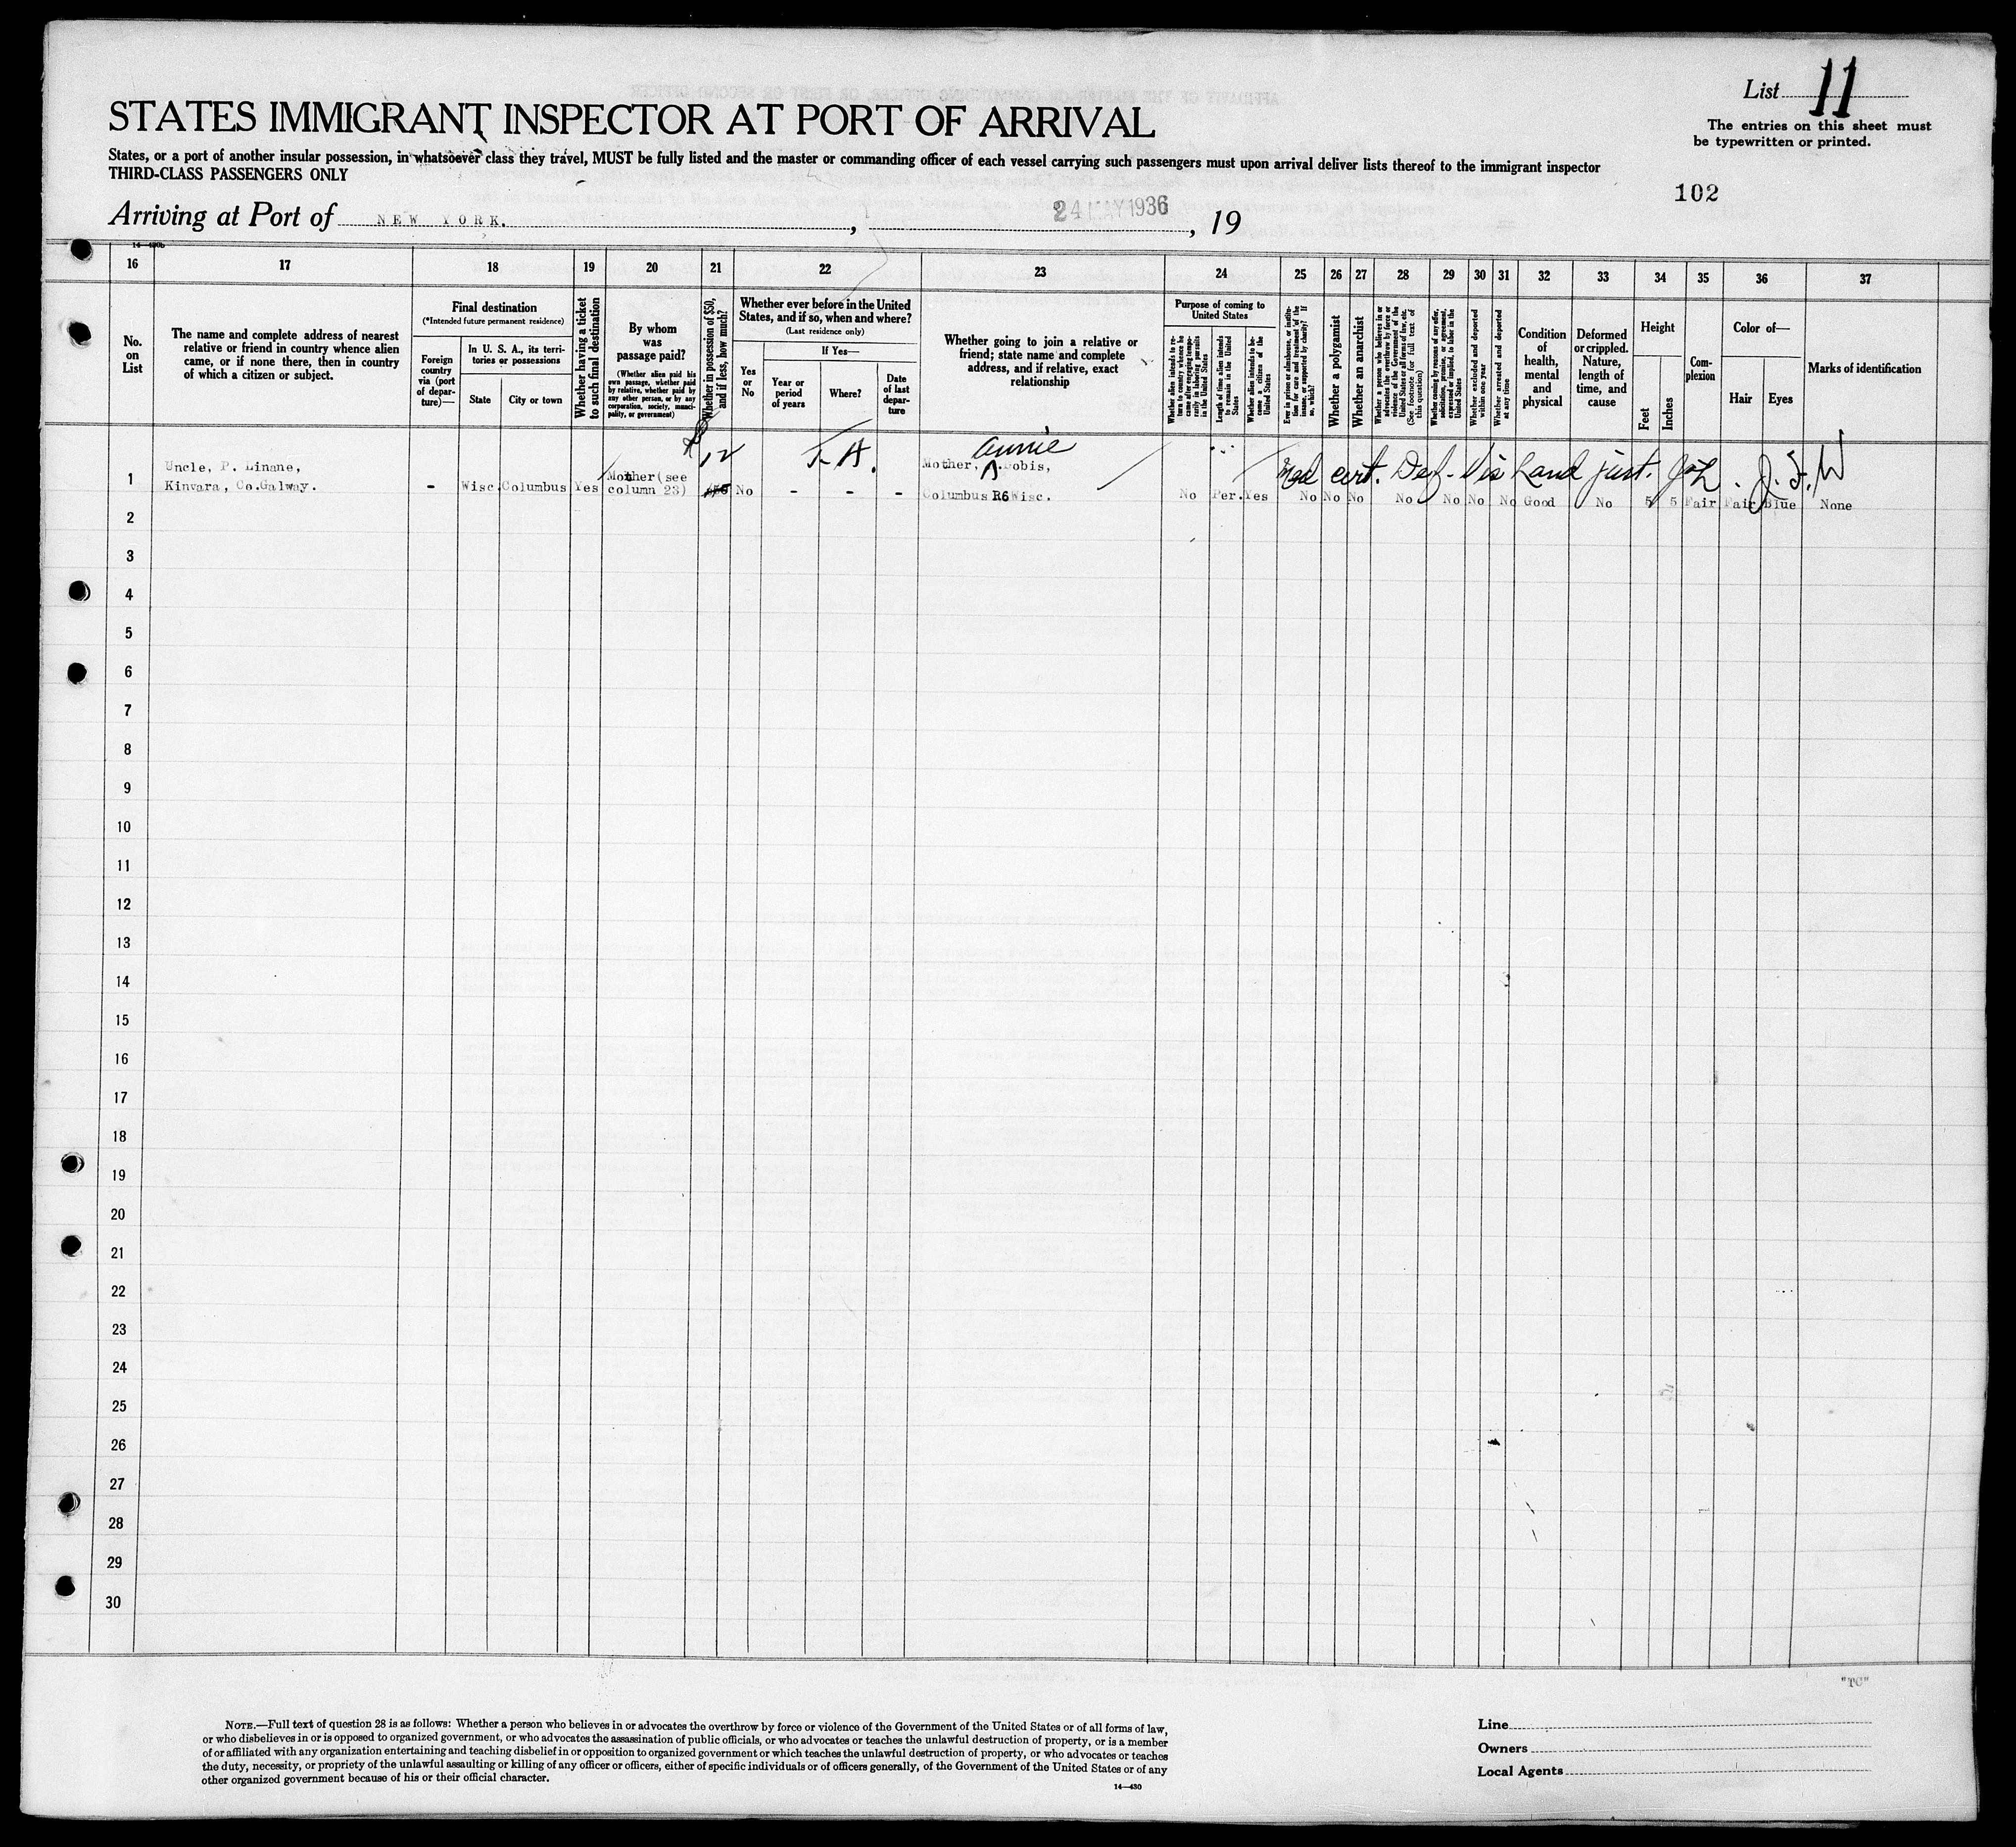 List 11
The entries on this sheet must
be typewritten or printed.
STATES IMMIGRANT INSPECTOR AT PORT OF ARRIVAL
States, or a port of another insular possession, in whatsoever class they travel, MUST be fully listed and the master or commanding officer of each vessel carrying such passengers must upon arrival deliver lists thereof to the immigrant inspector
THIRD-CLASS PASSENGERS ONLY
102
Arriving at Port of NEW YORK. , 24 MAY 1936 , 19
14-430b
16 17 18 19 20 21 22 23 24 25 26 27 28 29 30 31 32 33 34 35 36 37
No.
on
List
The name and complete address of nearest
relative or friend in country whence alien
came, or if none there, then in country
of which a citizen or subject.
Final destination
(*Intended future permanent residence)
Foreign
country
via (port
of depar-
ture)—
In U. S. A., its terri-
tories or possessions
State
City or town
Whether having a ticket
to such final destination
By whom
was
passage paid?
(Whether alien paid his
own passage, whether paid
by relative, whether paid by
any other person, or by any
corporation, society, munici-
pality, or government)
Whether in possession of $50,
and if less, how much?
Whether ever before in the United
States, and if so, when and where?
(Last residence only)
Yes
or
No
If Yes—
Year or
period
of years
Where?
Date
of last
depar-
ture
Whether going to join a relative or
friend; state name and complete
address, and if relative, exact
relationship
Purpose of coming to
United States
Whether alien intends to re-
turn to country whence he
came after engaging tempo-
rarily in laboring pursuits
in the United States
Length of time alien intends
to remain in the United
States
Whether alien intends to be-
come a citizen of the
United States
Ever in prison or almshouse, or institu-
tion for care and treatment of the
insane, or supported by charity? If
so, which?
Whether a polygamist
Whether an anarchist
Whether a person who believes in or
advocates the overthrow by force or
violence of the Government of the
United States or all forms of law, etc.
(See footnote for full text of
this question)
Whether coming by reasons of any offer,
solicitation, promise, or agreement,
expressed or implied, to labor in the
United States
Whether excluded and deported
within one year
Whether arrested and deported
at any time
Condition
of
health,
mental
and
physical
Deformed
or crippled.
Nature,
length of
time, and
cause
Height
Feet
Inches
Com-
plexion
Color of—
Hair
Eyes
Marks of identification
$12 T. A. Annie
Med cert. Def. Vis Land just.
Uncle, P. Linane, Mother, Dobis,
1 Kinvara, Co.Galway. - Wisc. Columbus Yes Mother(see
column 23) No - - - Columbus R6 Wisc. No Per. Yes No No No No No No No Good No 5 5 Fair Fair Blue None
2
3
4
5
6
7
8
9
10
11
12
13
14
15
16
17
18
19
20
21
22
23
24
25
26
27
28
29
30
"TC"
NOTE.—Full text of question 28 is as follows: Whether a person who believes in or advocates the overthrow by force or violence of the Government of the United States or of all forms of law,
or who disbelieves in or is opposed to organized government, or who advocates the assassination of public officials, or who advocates or teaches the unlawful destruction of property, or is a member
of or affiliated with any organization entertaining and teaching disbelief in or opposition to organized government or which teaches the unlawful destruction of property, or who advocates or teaches
the duty, necessity, or propriety of the unlawful assaulting or killing of any officer or officers, either of specific individuals or of officers generally, of the Government of the United States or of any
other organized government because of his or their official character.
14—430
Line
Owners
Local Agents